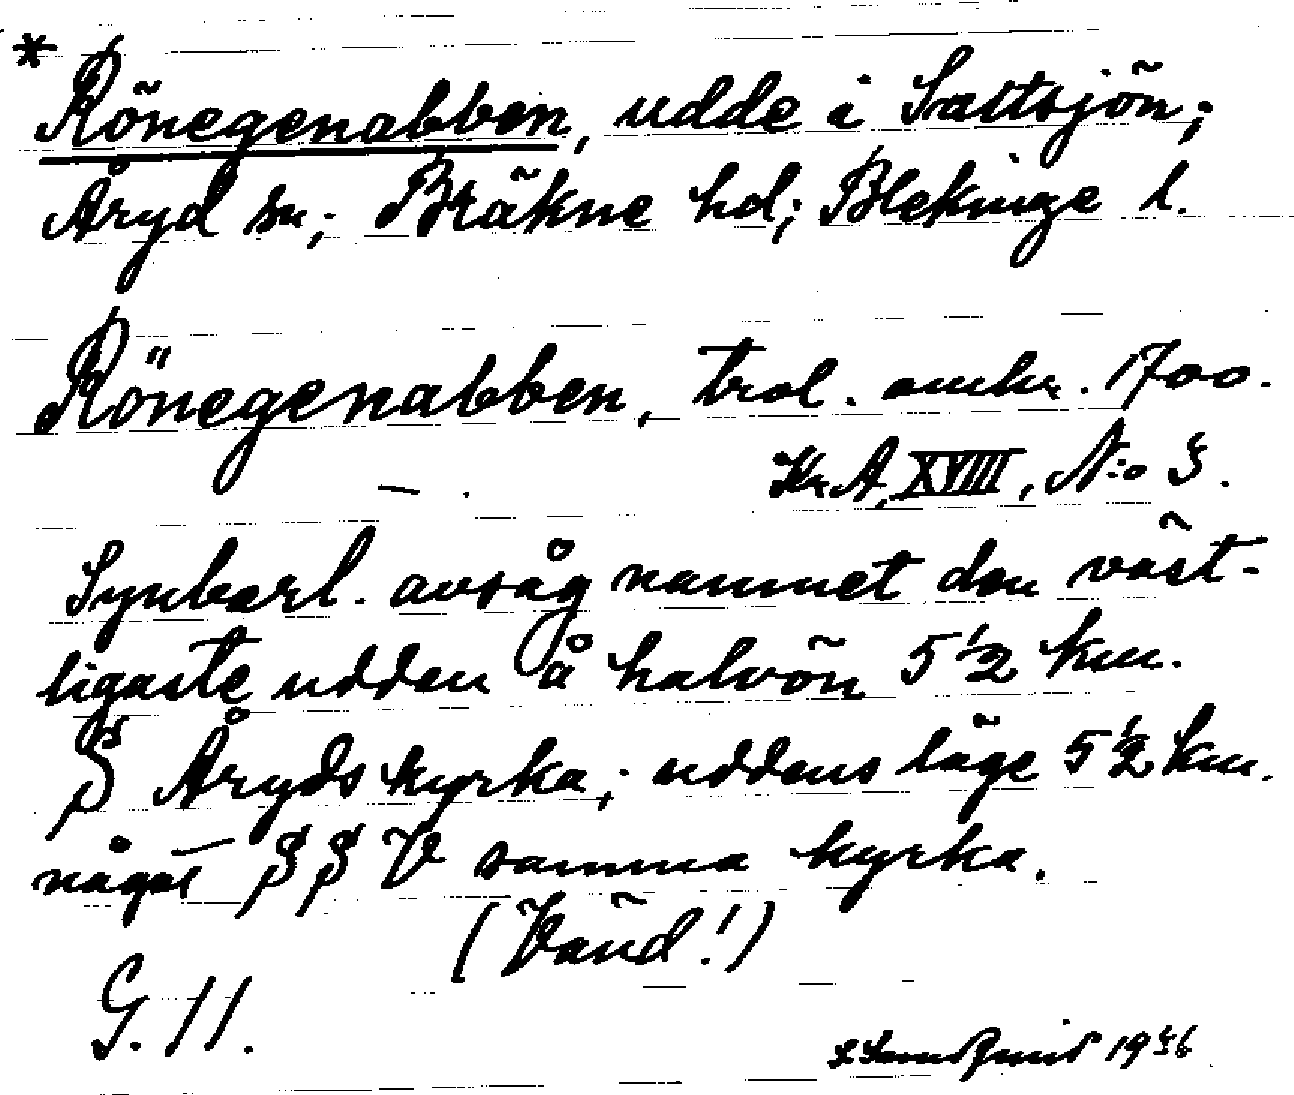 * Rönegenabben, udde i Saltsjön;
Åryd sn; Bräkne hd; Blekinge l.
Rönegenabben, trol. omkr. 1700.
Kr. A, XVIII, N:o 3.
Synbarl. avsåg namnet den väst-
ligaste udden å halvön 5 1/2 km.
S Åryds kyrka; uddens läge 5 1/2 km.
något SSV samma kyrka.
(Vänd!)
G. 11.
1936